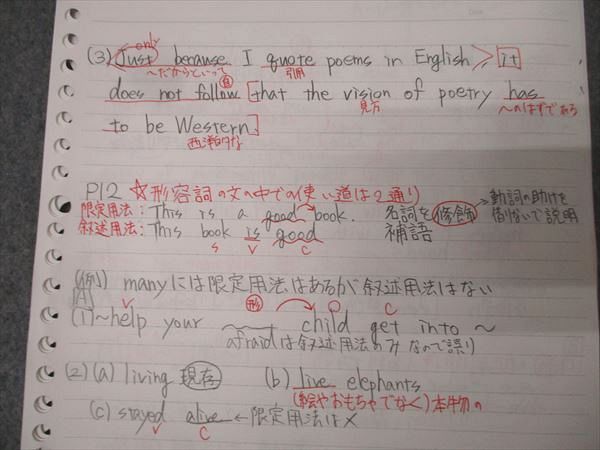 only
(3) Just because I quote poems in English > it
〜だからといって 引用 自
does not follow [that the vision of poetry has
見方 〜のはずである
to be Western].
西洋的な
P12 ☆形容詞の文の中での使い道は2通り
限定用法:This is a good book. 名詞を修飾 → 動詞の助けを
叙述用法:This book is good 補語 借りないで説明
S V C
(例) manyには限定用法はあるが叙述用法はない
A V 形 O C
(1)〜help your child get into 〜
afraidは叙述用法のみなので誤り
(2) (a) living 現存 (b) live elephants
(絵やおもちゃでなく)本物の
(c) stayed alive ← 限定用法は×
V C